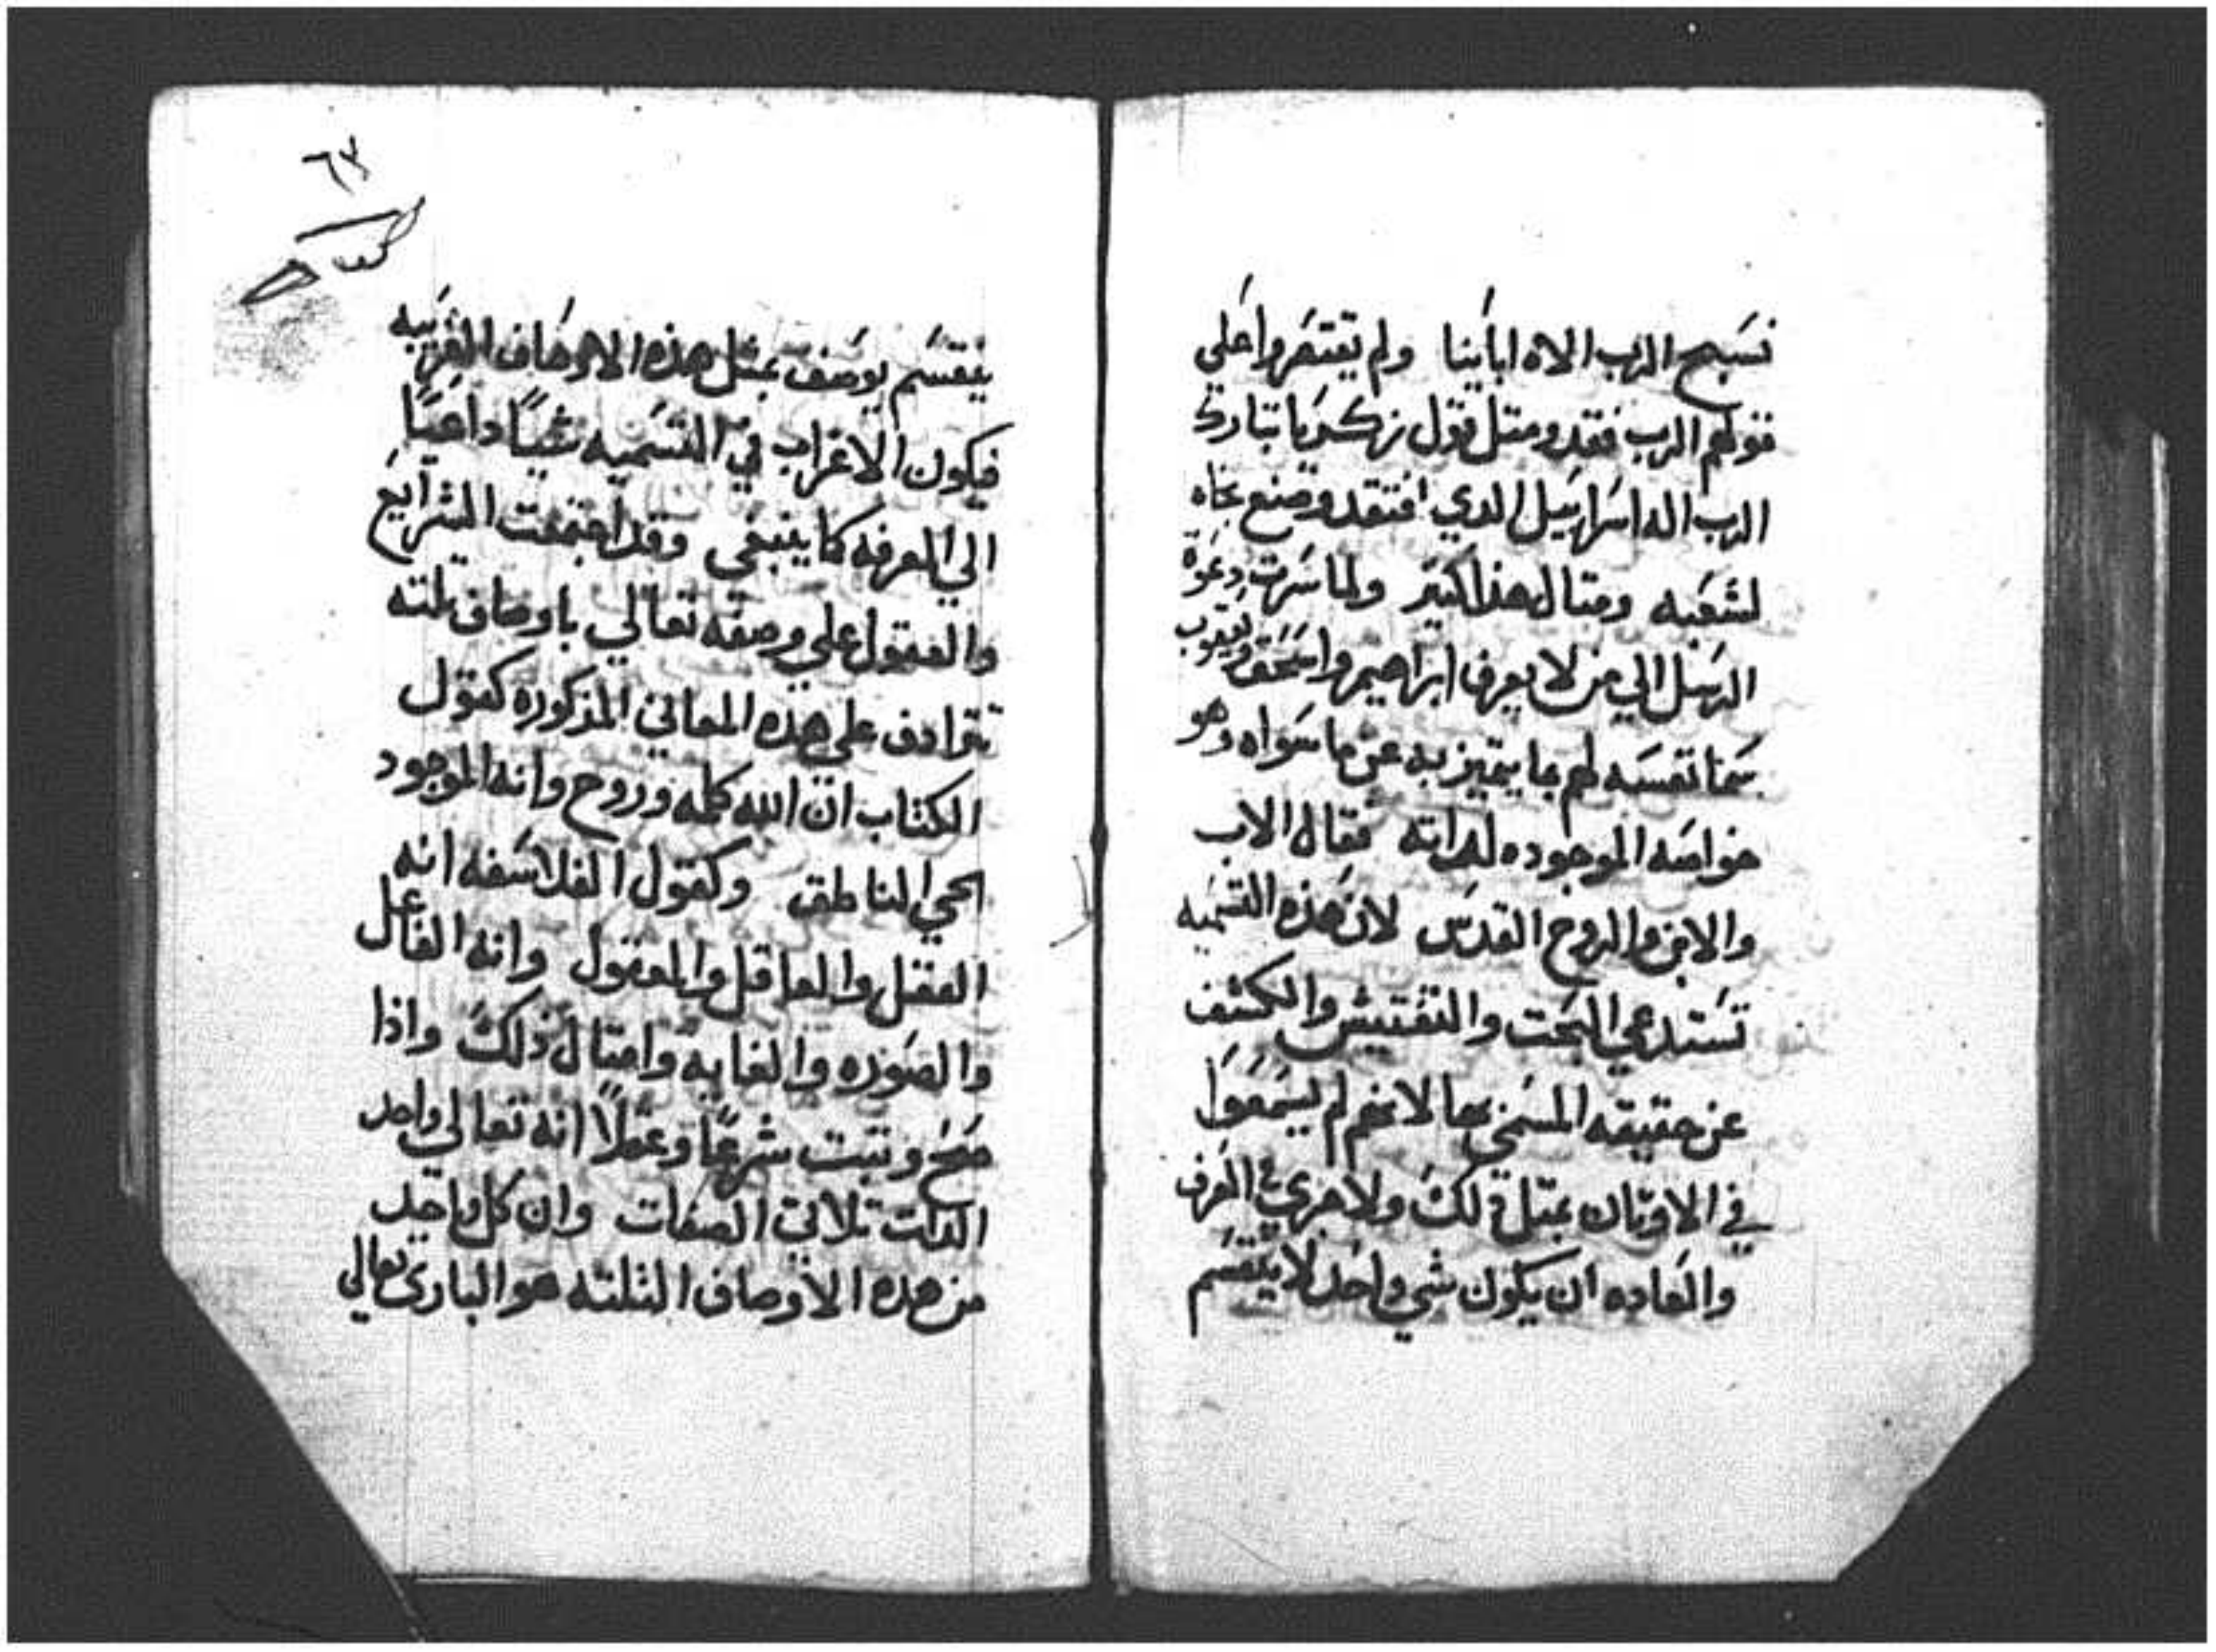 نسبح الرب الاه ابأينا ولم يقتصروا علي
قولهم الرب فقد ومتل قول زكريا تبارك
الرب اله اسراييل الدي افتقد وصنع نجاه
لشعبه ومتال هذا كتير ولما سرت دعوة
الرسل الي من لا يعرف ابراهيم واسحق ويعقوب
سما نفسه لهم بما يتميز به عن ما سواه وهو
خواصه الموجوده لداته فقال الاب
والابن والروح القدس لان هذه التسميه
تستدعي البحت والتفتيش والكشف
عن حقيقه المسمي بها لانهم لم يسمعوا
في الاوتان بمتل ذلك ولا جري في العرف
والعاده ان يكون شي واحد لا ينقسم
٦٣
ينقسم يوصف بمثل هذه الاوصاف الغريبه
فيكون الاغراب في التسميه شيًا داعيًا
الي المعرفه كما ينبغي وقد اجتمعت الشرايع
والعقول علي وصفه تعالي باوصاف تلته
تترادف علي هذه المعاني المذكوره كقول
الكتاب ان الله كلمه وروح وانه الموجود
الحي الناطق وكقول الفلاسفه انه
العقل والعاقل والمعقول وانه الفاعل
والصوره والغايه وامتال ذلك واذا
صح وتبت شرعًا وعقلًا انه تعالي واحد
الدات تلاتي الصفات وان كل واحد
من هده الاوصاف الثلثه هو الباري تعالي